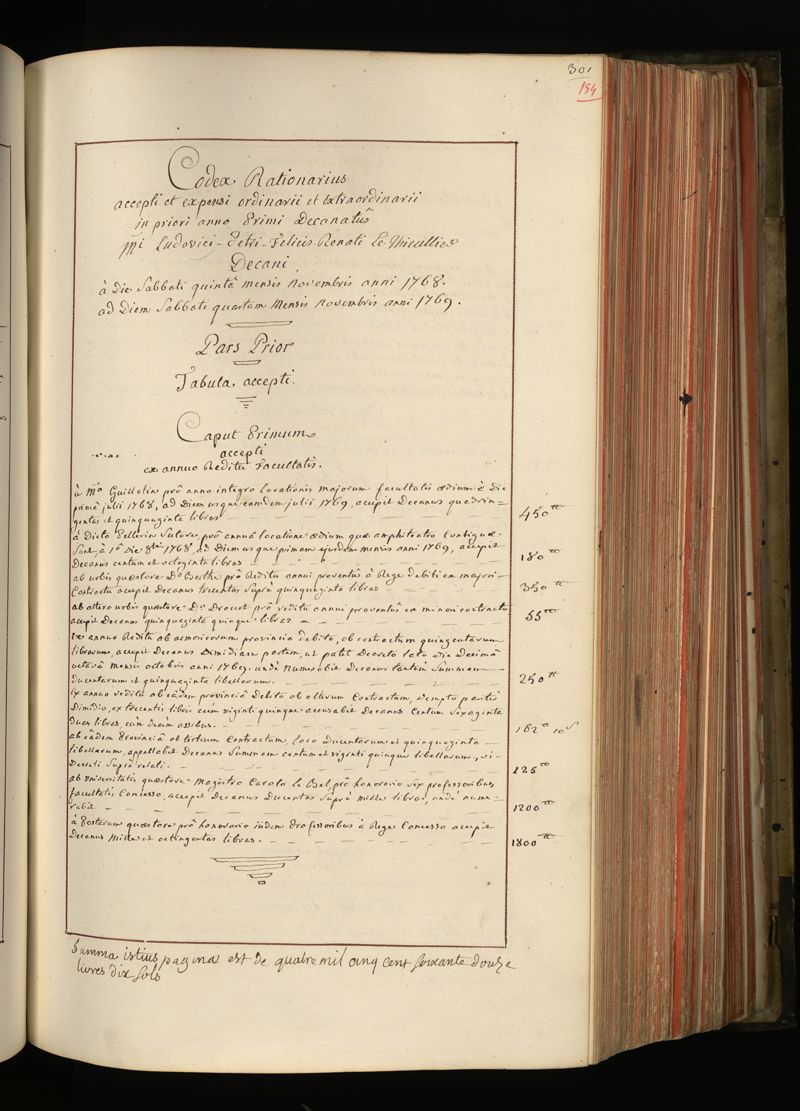 301
154
Codex Rationarius
accepti et expensi ordinarii et extraordinarii
in priori anno Primi Decanatûs
Mri Ludovici-Petri-Felicis-Renati Le Thieullier
Decani
à Die Sabbati quintâ mensis novembris anni 1768.
ad Diem Sabbati quartam mensis novembris anni 1769.
Pars Prior
Tabula accepti.
Caput Primum
accepti
ex annuo Reditu Facultatis.
à Mro Guillotin prô anno integro Locationis majorum facultatis ædium è Die
primâ julii 1768, ad Diem usque eamdem julii 1769, accepit Decanus quadrin=
gentas et quinquaginta libras 450 tt
à Dicto Pellerin Sutore, prô annuâ locatione ædium quæ amphiteatro Contiguæ
Sunt, à 1â Die 8bris 1768, ad Diem usque primam ejusdem mensis anni 1769, accepit
Decanus centum et octoginta libras 180 tt
ab urbis quæstore Do Boethe prô Reditu annui proventûs à Rege debiti ex majori
Contractu accepit Decanus trecentas Suprà quinquaginta libras 350 tt
ab altero urbis quæstore Do Drouet prô reditu annui proventûs ex minori contractu
accepit Decanus quinquaginta quinque libras 55 tt
ex annuo Reditu ab armoricorum provincia debito, ob contractum quingentarum
librarum, accepit Decanus Dimidiam partem, ut patet Decreto lato Die Decimâ
octavâ mensis octobris anni 1769. undè numerabit Decanus tantùm Summam
ducentarum et quinquaginta libellarum. 250 tt
Ex annuo reditu ab eâdem provinciâ Debito ob alterum Contractum, dempto partis
Dimidio, ex trecentis libris cùm viginti quinque accusabit Decanus Centum Sexaginta
duas libras, cùm decem assibus. 162 tt 10 s
ab eâdem Provinciâ ob tertium Contractum, loco Ducentarum et quinquaginta
libellarum, appellabit Decanus Summam centum et viginti quinque libellarum, vi
Decreti Suprà relati. 125 tt
ab universitatis quæstore Magistro Carolo le Bel, prô honorario Sex professoribus
facultatis Concesso, accepit Decanus Ducentas Suprà mille libras, indè nume-
rabit 1200 tt
à Postarum quæstore prô honorario iisdem Professoribus à Rege Concesso accepit
Decanus Mille et octingentas libras. 1800 tt
Summa istius paginæ est de quatre mil cinq cent soixante douze
livres dix sols